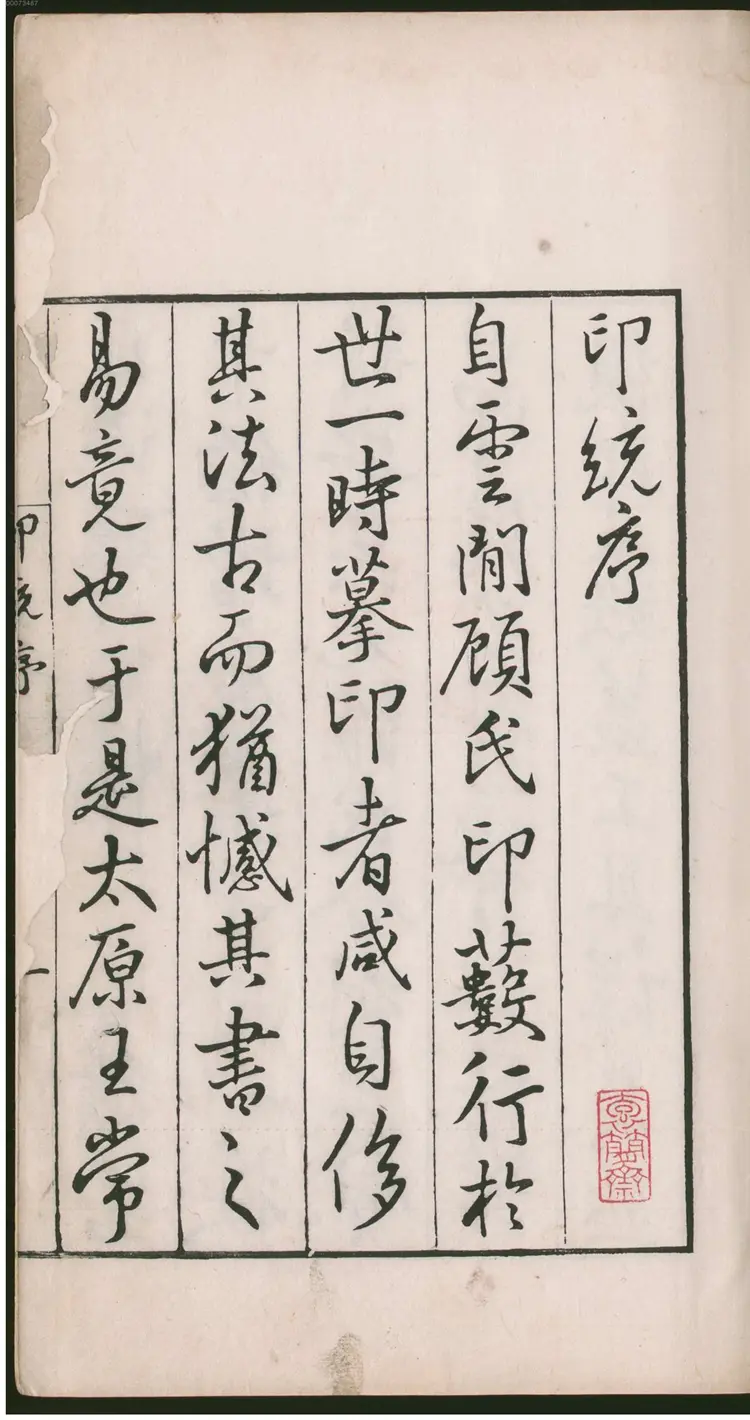 印統序
自雲間顧氏印藪行於
世一時摹印者咸自侈
其法古而猶憾其書之
易竟也于是太原王常
印統序
一
00073487